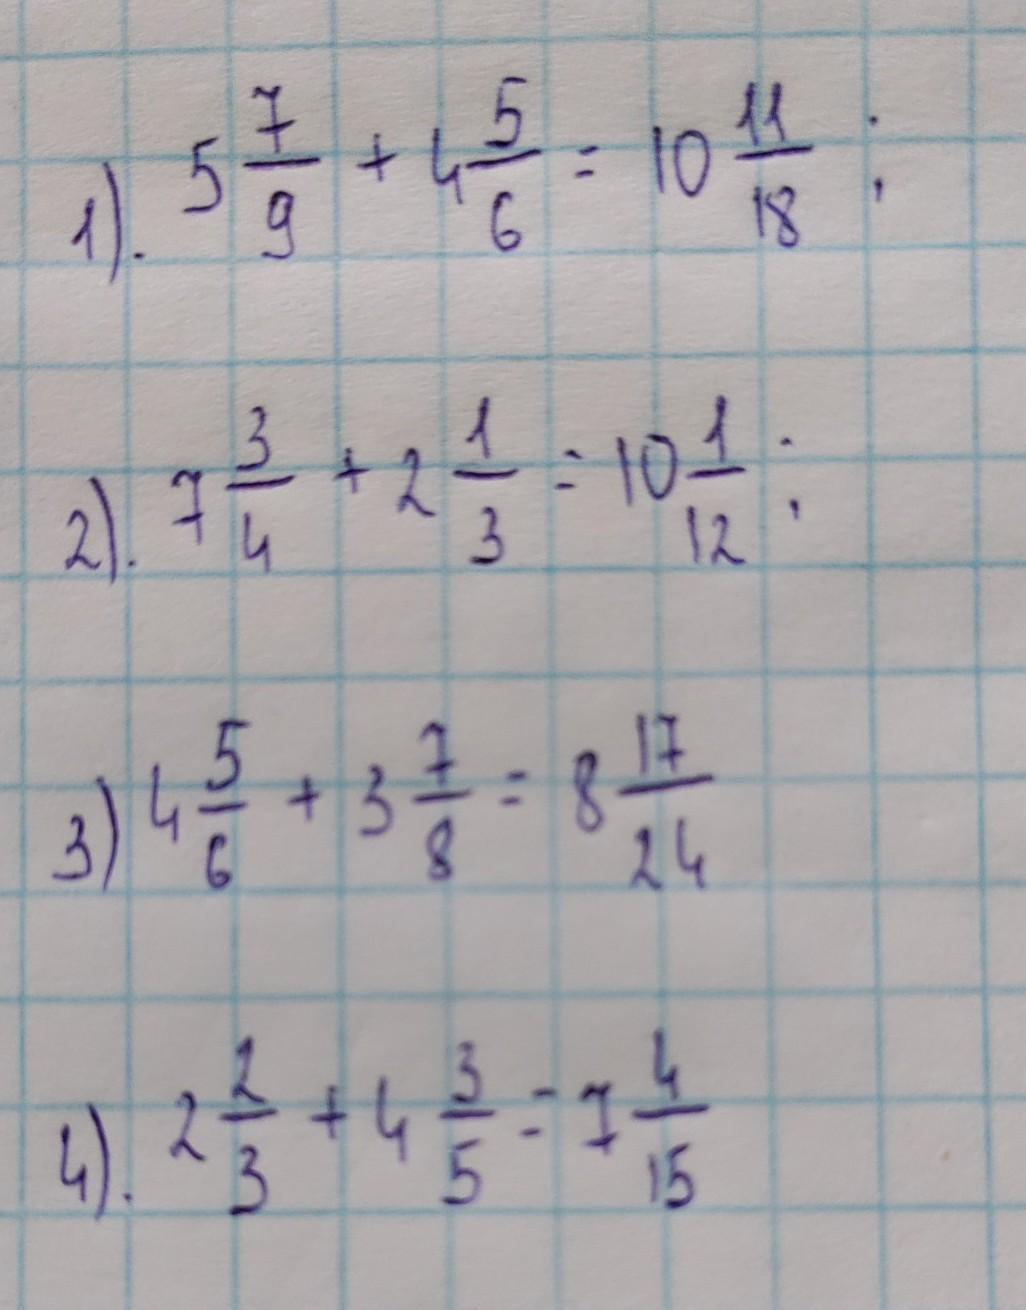 1). 5 7/9 + 4 5/6 = 10 11/18 ;
2). 7 3/4 + 2 1/3 = 10 1/12 ;
3) 4 5/6 + 3 7/8 = 8 17/24
4). 2 2/3 + 4 3/5 = 7 4/15